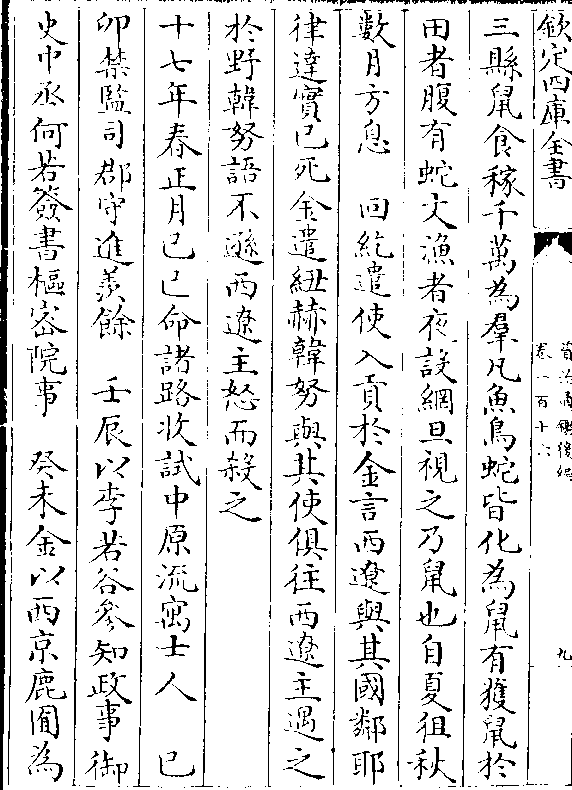 欽定四庫全書
卷一百十六
九
三縣鼠食稼千萬為羣凡魚鳥蛇皆化為鼠有獲鼠於
田者腹有蛇文漁者夜設網旦視之乃鼠也自夏徂秋
數月方息　回紇遣使入貢於金言西遼與其國鄰耶
律達實已死金遣紐赫韓努與其使俱往西遼主遇之
於野韓努語不遜西遼主怒而殺之
十七年春正月己巳命諸路收試中原流寓士人　己
卯禁監司郡守進羨餘　壬辰以李若谷參知政事御
史中丞何若簽書樞密院事　癸未金以西京鹿囿為